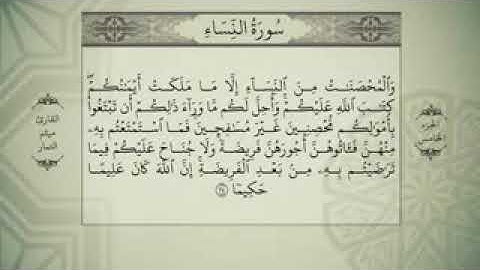 سُورَةُ النِّسَاءِ
وَالْمُحْصَنَٰتُ مِنَ النِّسَآءِ إِلَّا مَا مَلَكَتْ أَيْمَٰنُكُمْ ۖ
كِتَٰبَ اللَّهِ عَلَيْكُمْ ۚ وَأُحِلَّ لَكُم مَّا وَرَآءَ ذَٰلِكُمْ أَن تَبْتَغُوا۟
بِأَمْوَٰلِكُم مُّحْصِنِينَ غَيْرَ مُسَٰفِحِينَ ۚ فَمَا اسْتَمْتَعْتُم بِهِۦ
مِنْهُنَّ فَـَٔاتُوهُنَّ أُجُورَهُنَّ فَرِيضَةً ۚ وَلَا جُنَاحَ عَلَيْكُمْ فِيمَا
تَرَٰضَيْتُم بِهِۦ مِنۢ بَعْدِ الْفَرِيضَةِ ۚ إِنَّ اللَّهَ كَانَ عَلِيمًا
حَكِيمًا ﴿٢٤﴾
الجزء
الخامس
القارئ
ميثم
التمار